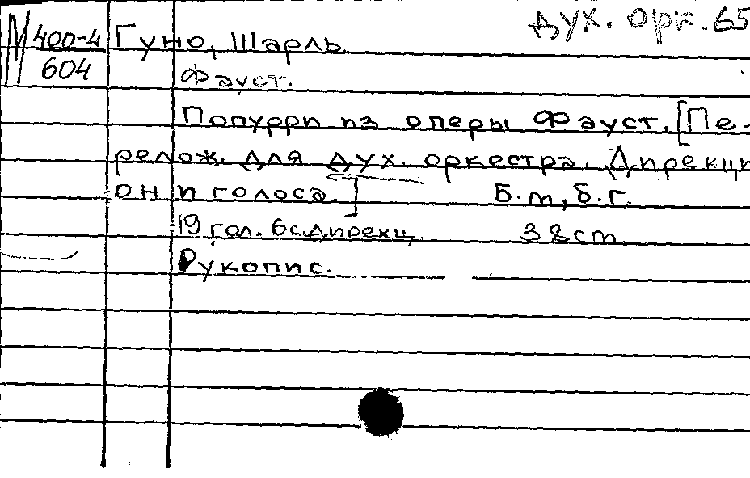 дух. орк. 65
М 400-4 Гуно, Шарль.
604 Фауст.
Попурри из оперы Фауст. [Пе-
релож. для дух. оркестра. Дирекци
он и голоса.] Б.м, б.г.
19 гол. бс.дирекц 38 ст
Рукопис.